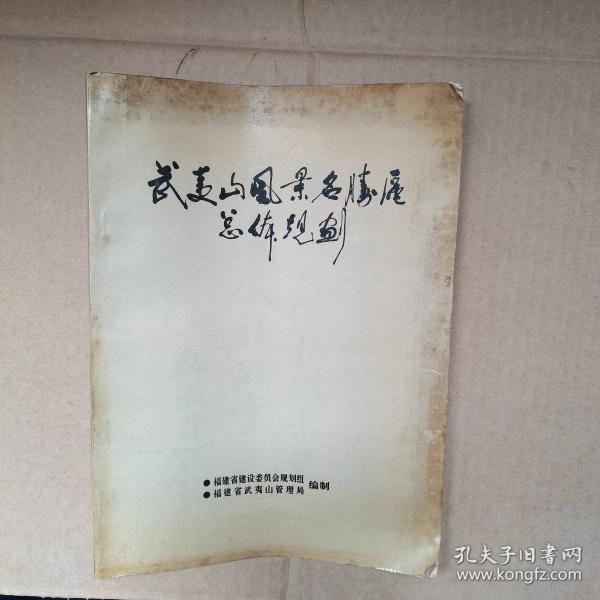 武夷山风景名勝區
总体規劃
●福建省建设委员会规划组
●福建省武夷山管理局
编制
孔夫子旧書网
www.kongfz.com